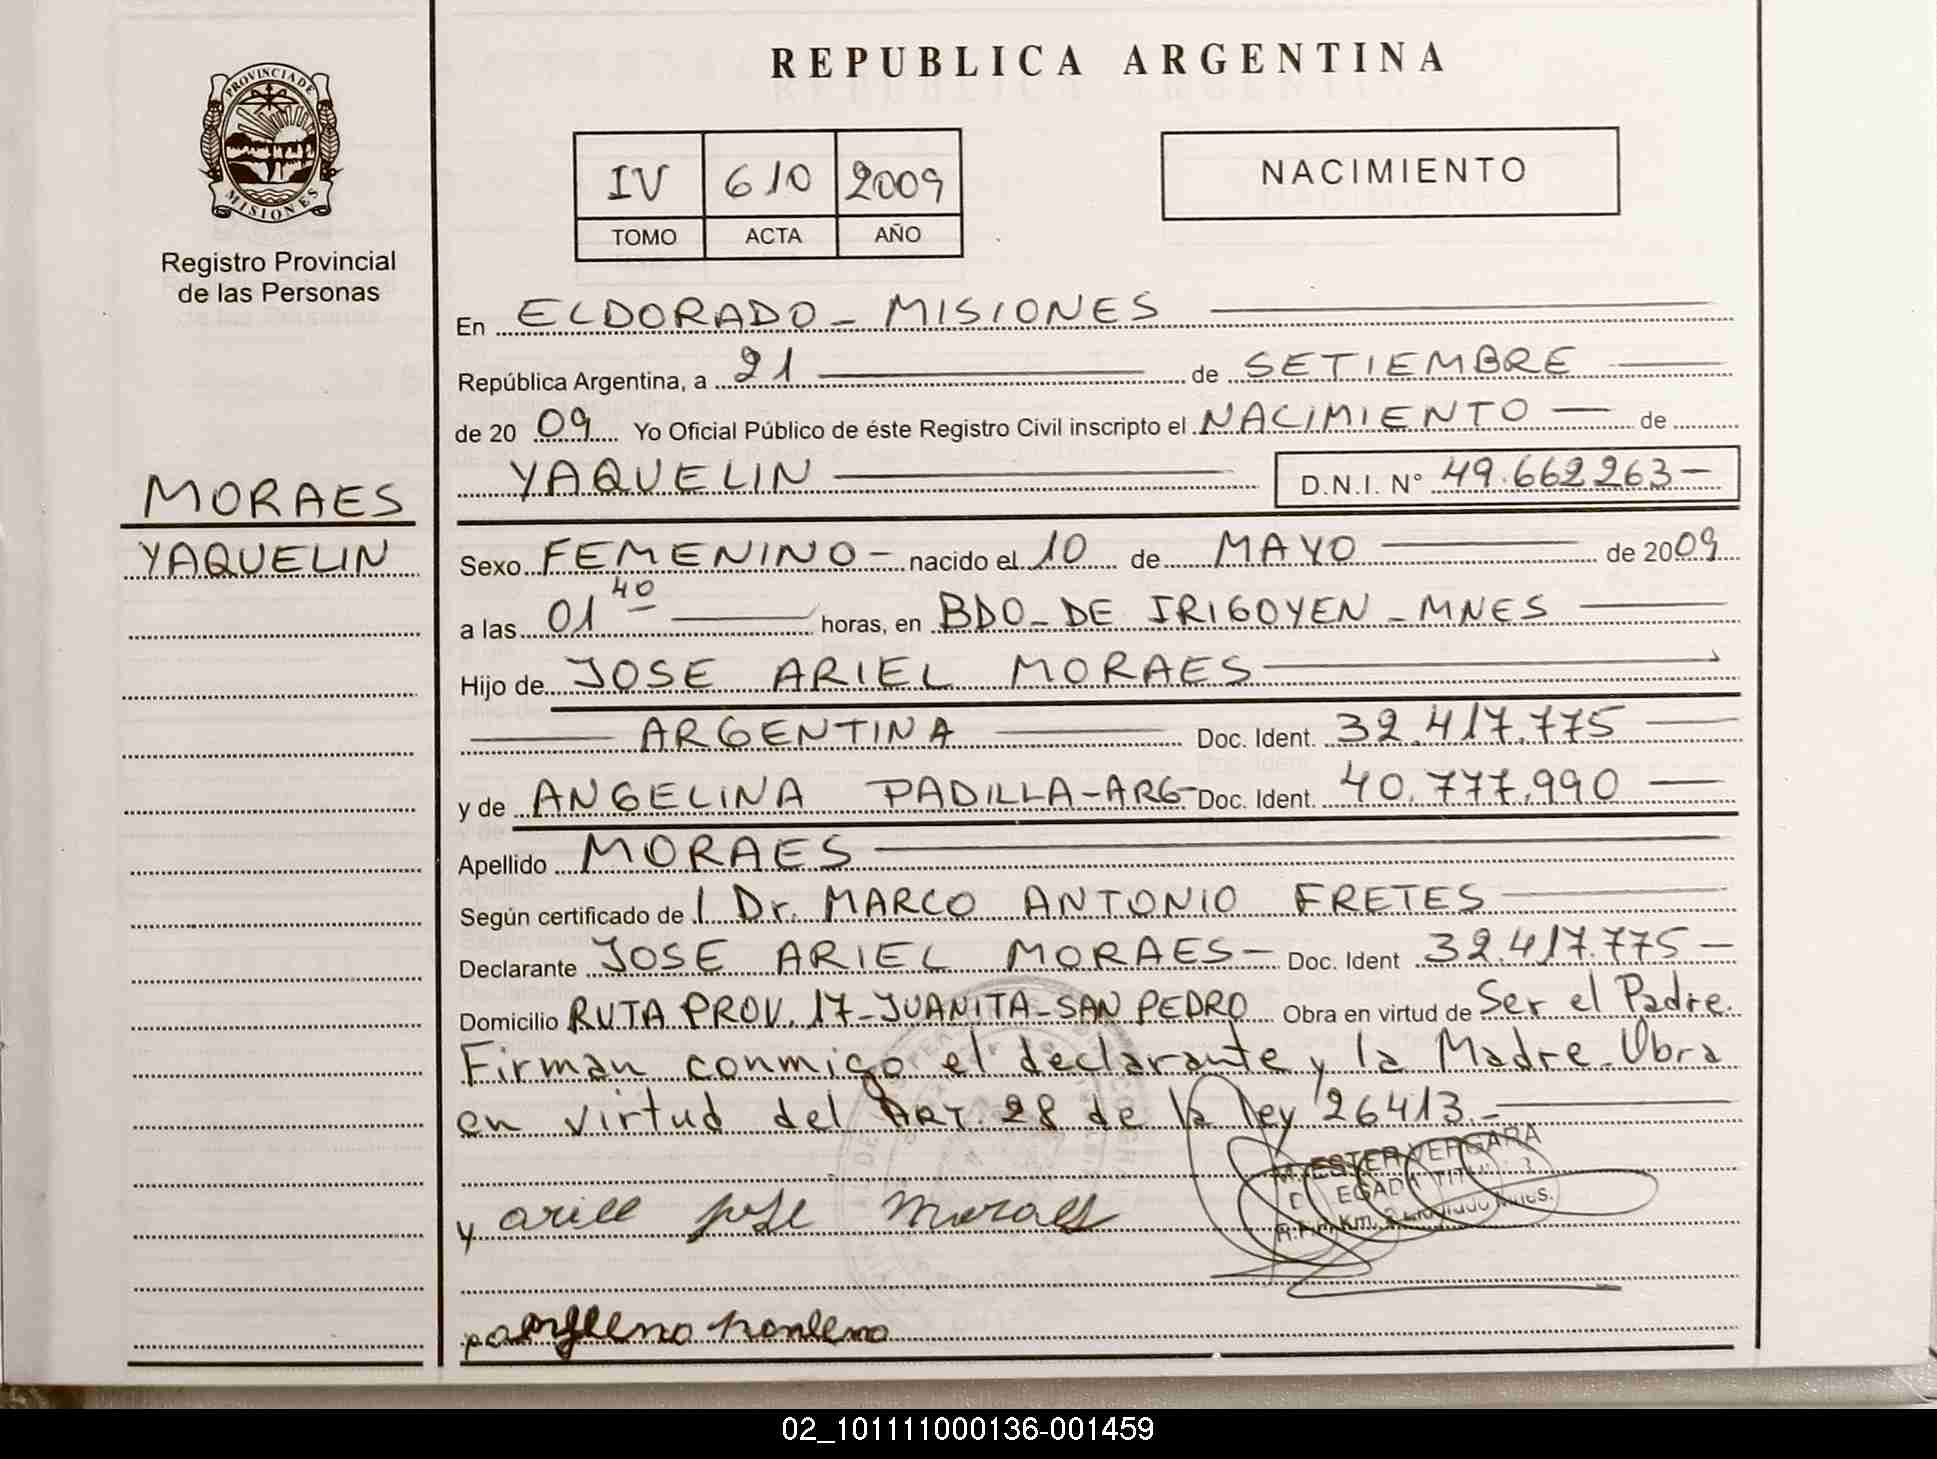 REPUBLICA ARGENTINA
PROVINCIA DE
MISIONES
Registro Provincial
de las Personas
IV 610 2009
TOMO ACTA AÑO
NACIMIENTO
En ELDORADO - MISIONES
República Argentina, a 21 de SETIEMBRE
de 20 09 Yo Oficial Público de éste Registro Civil inscripto el NACIMIENTO de
YAQUELIN D.N.I. N° 49.662263
MORAES
YAQUELIN
Sexo FEMENINO - nacido el 10 de MAYO de 2009
a las 01 40 horas, en BDO - DE IRIGOYEN - MNES
Hijo de JOSE ARIEL MORAES
ARGENTINA Doc. Ident. 32.417.775
y de ANGELINA PADILLA - ARG - Doc. Ident. 40.777.990
Apellido MORAES
Según certificado de l Dr. MARCO ANTONIO FRETES
Declarante JOSE ARIEL MORAES - Doc. Ident 32.417.775 -
Domicilio RUTA PROV. 17 - JUANITA - SAN PEDRO Obra en virtud de Ser el Padre.
Firman conmigo el declarante y la Madre. Obra
en virtud del ART. 28 de la ley 26413.-
ESTER VERGARA
y ariel jose moraes
02_101111000136-001459